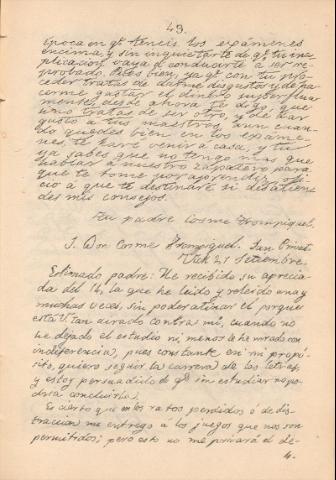 49.
época en qe. teneis los exámenes
encima, y sin inquietarte de qe. tu in-
aplicacion vaya á conducirte á ser re-
probado. Pues bien, ya qe. con tu pro-
ceder tratas de darme disgustos y de ha-
cerme gastar el dinero inútil
mente, desde ahora te digo, que
sino tratas de ser otro, y de dar
gusto á tus maestros, aun cuan-
do quedes bien en los exáme-
nes, te haré venir á casa, y tu
ya sabes que no tengo mas que
hablar á nuestro zapatero para
que te tome por aprendiz, ofi-
cio á que te destinaré si desatien-
des mis consejos.
Tu padre Cosme Trompiquel.
S. Don Cosme Trompiquel. San
Vich 21 Setiembre.
Estimado padre: He recibido su aprecia-
da del 16, la que he leido y releido una y
muchas veces, sin poder atinar el porque
está V. tan airado contra mi, cuando no
he dejado el estudio ni menos le he mirado con
indiferencia, pues constante en mi propó-
sito, quiero seguir la carrera de las letras,
y estoy persuadido de qe. sin estudiar no po-
dria concluirla.
Es cierto que en los ratos perdidos ó de dis-
traccion me entrego á los juegos que nos son
permitidos; pero esto no me privará el de-
4.